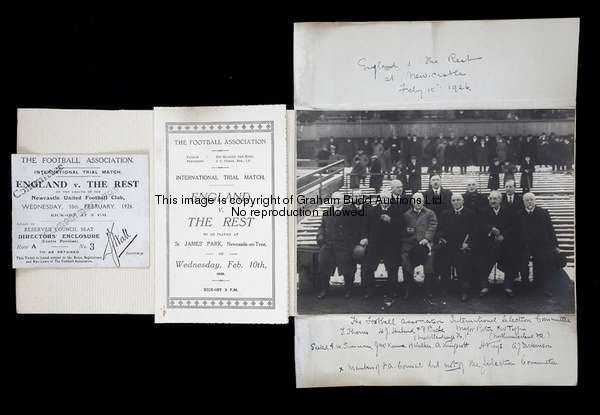 THE FOOTBALL ASSOCIATION.
INTERNATIONAL TRIAL MATCH.
ENGLAND v. THE REST
ON THE GROUND OF THE
Newcastle United Football Club,
WEDNESDAY, 10th FEBRUARY, 1926.
KICK-OFF AT 3 P.M.
RESERVED COUNCIL SEAT
DIRECTORS' ENCLOSURE
Row A No. 3
TO BE RETAINED.
THE FOOTBALL ASSOCIATION
INTERNATIONAL TRIAL MATCH.
ENGLAND
v.
THE REST
TO BE PLAYED AT
St. JAMES' PARK, Newcastle-on-Tyne,
ON
Wednesday, Feb. 10th,
1926.
KICK-OFF 3 P.M.
England v the Rest
at Newcastle
Feby 10th 1926
This image is copyright of Graham Budd Auctions Ltd.
No reproduction allowed.
The Football Association International Selection Committee
x Members of F.A. Council but not of the Selection Committee